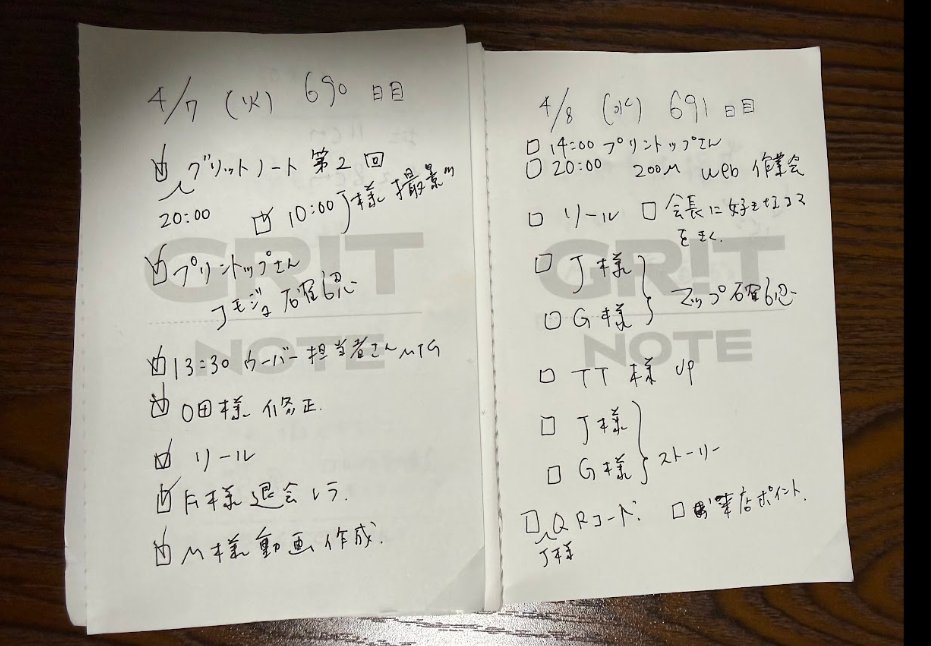 4/7 (火) 690 日目
☑ グリットノート 第2回
20:00 ☑ 10:00 J様 撮影
☑ プリントップさん
確認
☑ 13:30 ウーバー担当者さんMTG
☑ O田様 修正.
☑ リール
☑ 様退会
☑ M様動画作成.
GRIT
NOTE
4/8 (水) 691 日目
□ 14:00 プリントップさん
□ 20:00 ZOOM Web 作業会
□ リール □ 会長に好きな
をきく.
□ J様
□ G様 } マップ確認
□ TT様 UP
□ J様
□ G様 } ストーリー
□ QRコード. □ 来店ポイント.
J様
GRIT
NOTE